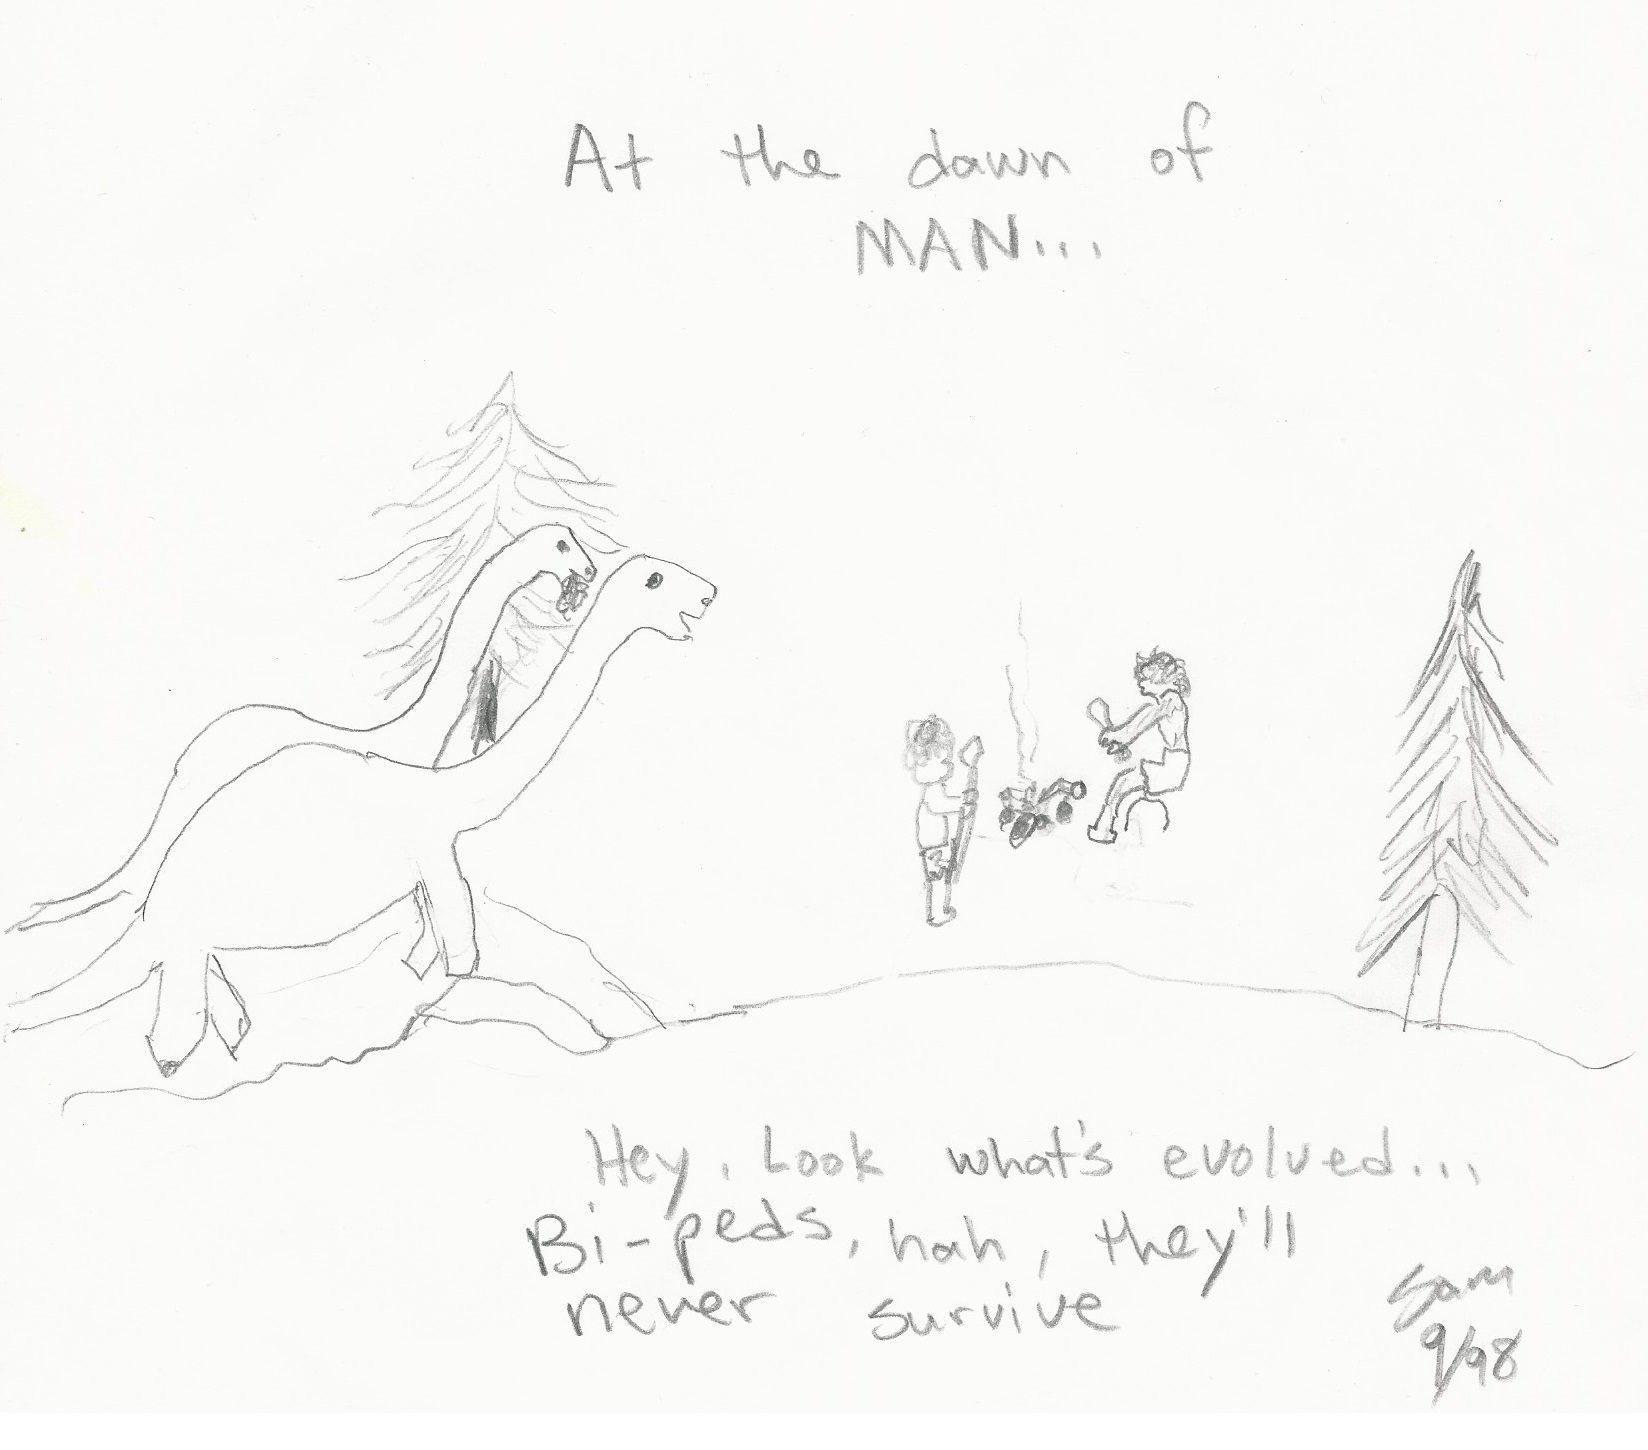 At the dawn of
MAN...
Hey, Look what's evolved...
Bi-peds, hah, they'll
never survive
Sam
9/98